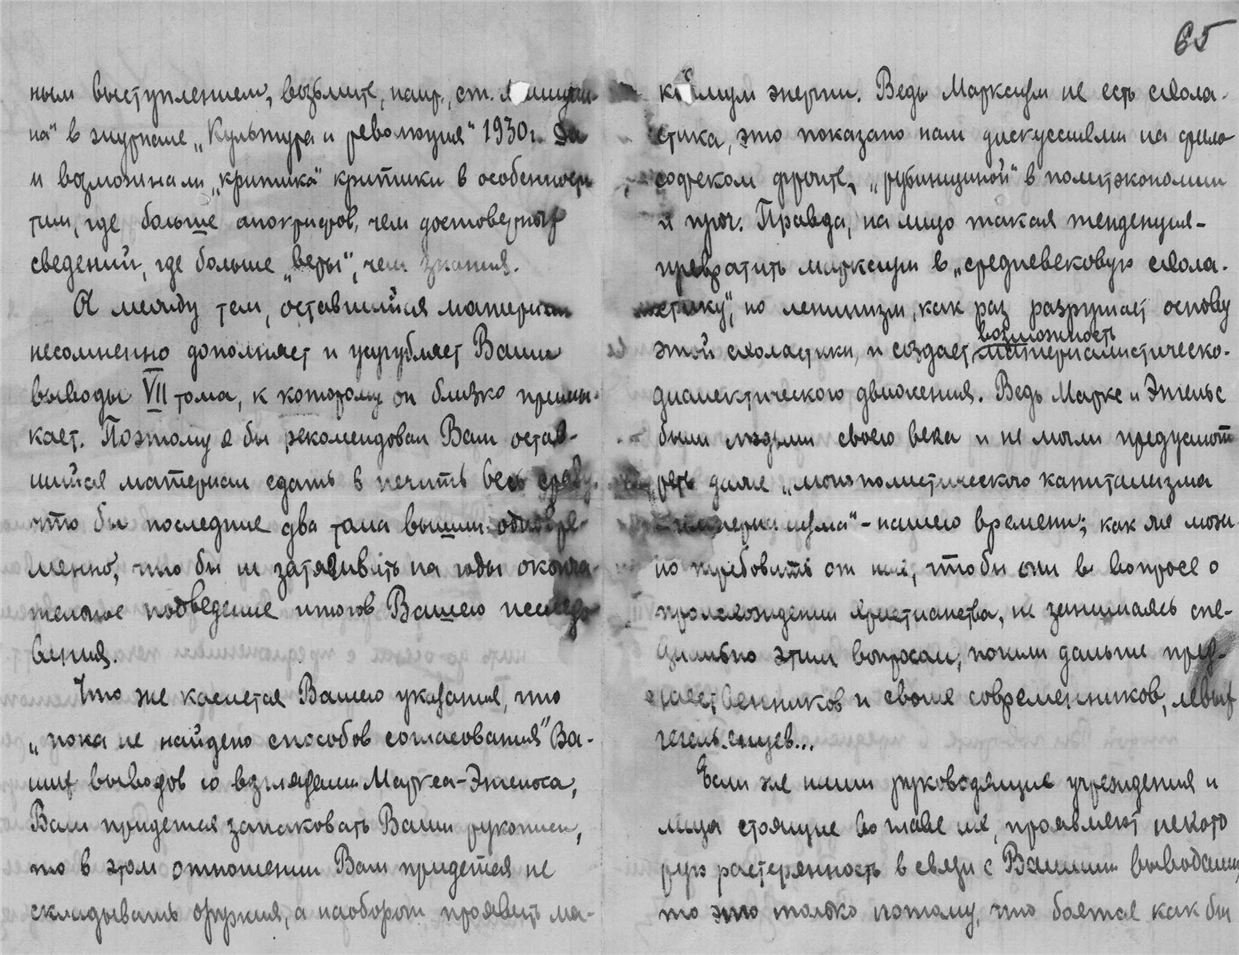 65
ным выступлением, возьмите, напр., ст.
на" в журнале „Культура и революция" 1930г. Да
и возможна ли „критика" критики в особенности
там, где больше апокрифов, чем достоверных
сведений, где больше „веры", чем знания.
А между тем, оставшийся материал
несомненно дополняет и углубляет Ваши
выводы VII тома, к которому он близко примы-
кает. Поэтому я бы рекомендовал Вам остав-
шийся материал сдать в печать весь сразу,
что бы последние два тома вышли одновре-
менно, что бы не затягивать на годы оконча-
тельное подведение итогов Вашего исследо-
вания.
Что же касается Вашего указания, что
„пока не найдено способов согласования" Ва-
ших выводов со взглядами Маркса-Энгельса,
Вам придется запаковать Ваши рукописи,
то в этом отношении Вам придется не
складывать оружия, а наоборот проявить ма-
ксимум энергии. Ведь Марксизм не есть схола-
стика, это показано нам дискуссиями на фило
софском фронте, „рубинщиной" в политэкономии
и проч. Правда, на лицо такая тенденция-
превратить марксизм в „средневековую схола-
стику", но ленинизм, как раз разрушает основу
возможность
этой схоластики, и создает материалистическо-
диалектического движения. Ведь Маркс и Энгельс
были людьми своего века и не могли предусмот
реть даже „монополистического капитализма
- империализма" - нашего времени; как же мож-
но требовать от них, чтобы они в вопросе о
происхождении христианства, не занимаясь спе-
циально этим вопросом, пошли дальше пред-
шественников и своих современников, левых
гегельянцев...
Если же наши руководящие учреждения и
лица стоящие во главе их, проявляют некото
рую растерянность в связи с Вашими выводами,
то это только потому, что боятся как бы